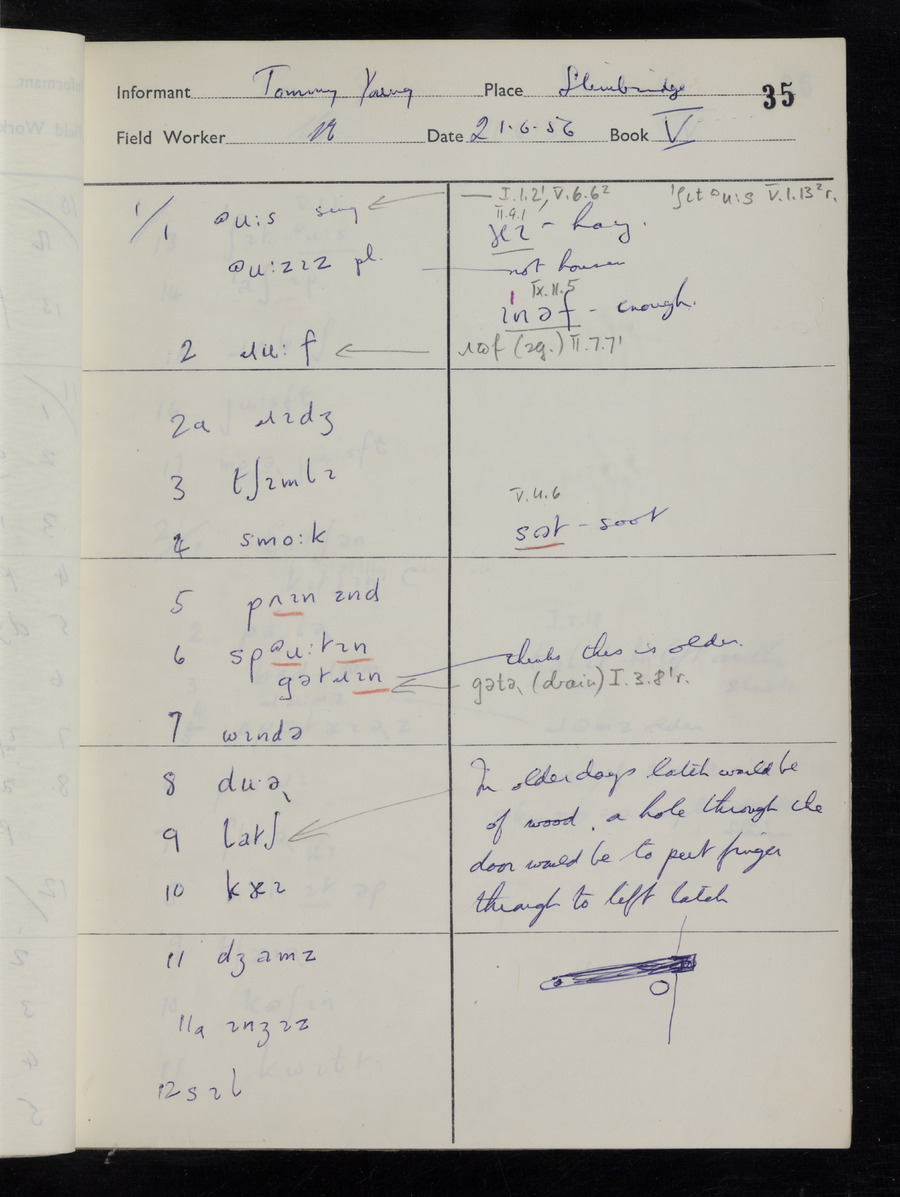 Informant Tommy Young Place Slimbridge 35
Field Worker Date 21·6·56 Book V
1/1 əu:s sing
I.1.2', V.6.6²
V.1.13²r.
II.9.1
- hay.
əu:zɪz pl.
not housen
IX.11.5
ɪnəf - enough.
2 ɹu:f
(sg.) II.7.7'
2a ɹɪdʒ
3 tʃɪmlɪ
V.4.6
4 smo:k
- soot
5 pʌɪn ɪnd
6 spəu:tɪn
thinks this is older.
gətɹɪn
(drain) I.3.8'r.
7 wɪndə
8 du·ə
In older days latch would be
of wood. a hole through the
9 latʃ
door would be to put finger
10
through to left latch
11 dʒamz
11a ɪnʒɪz
12 sɪl